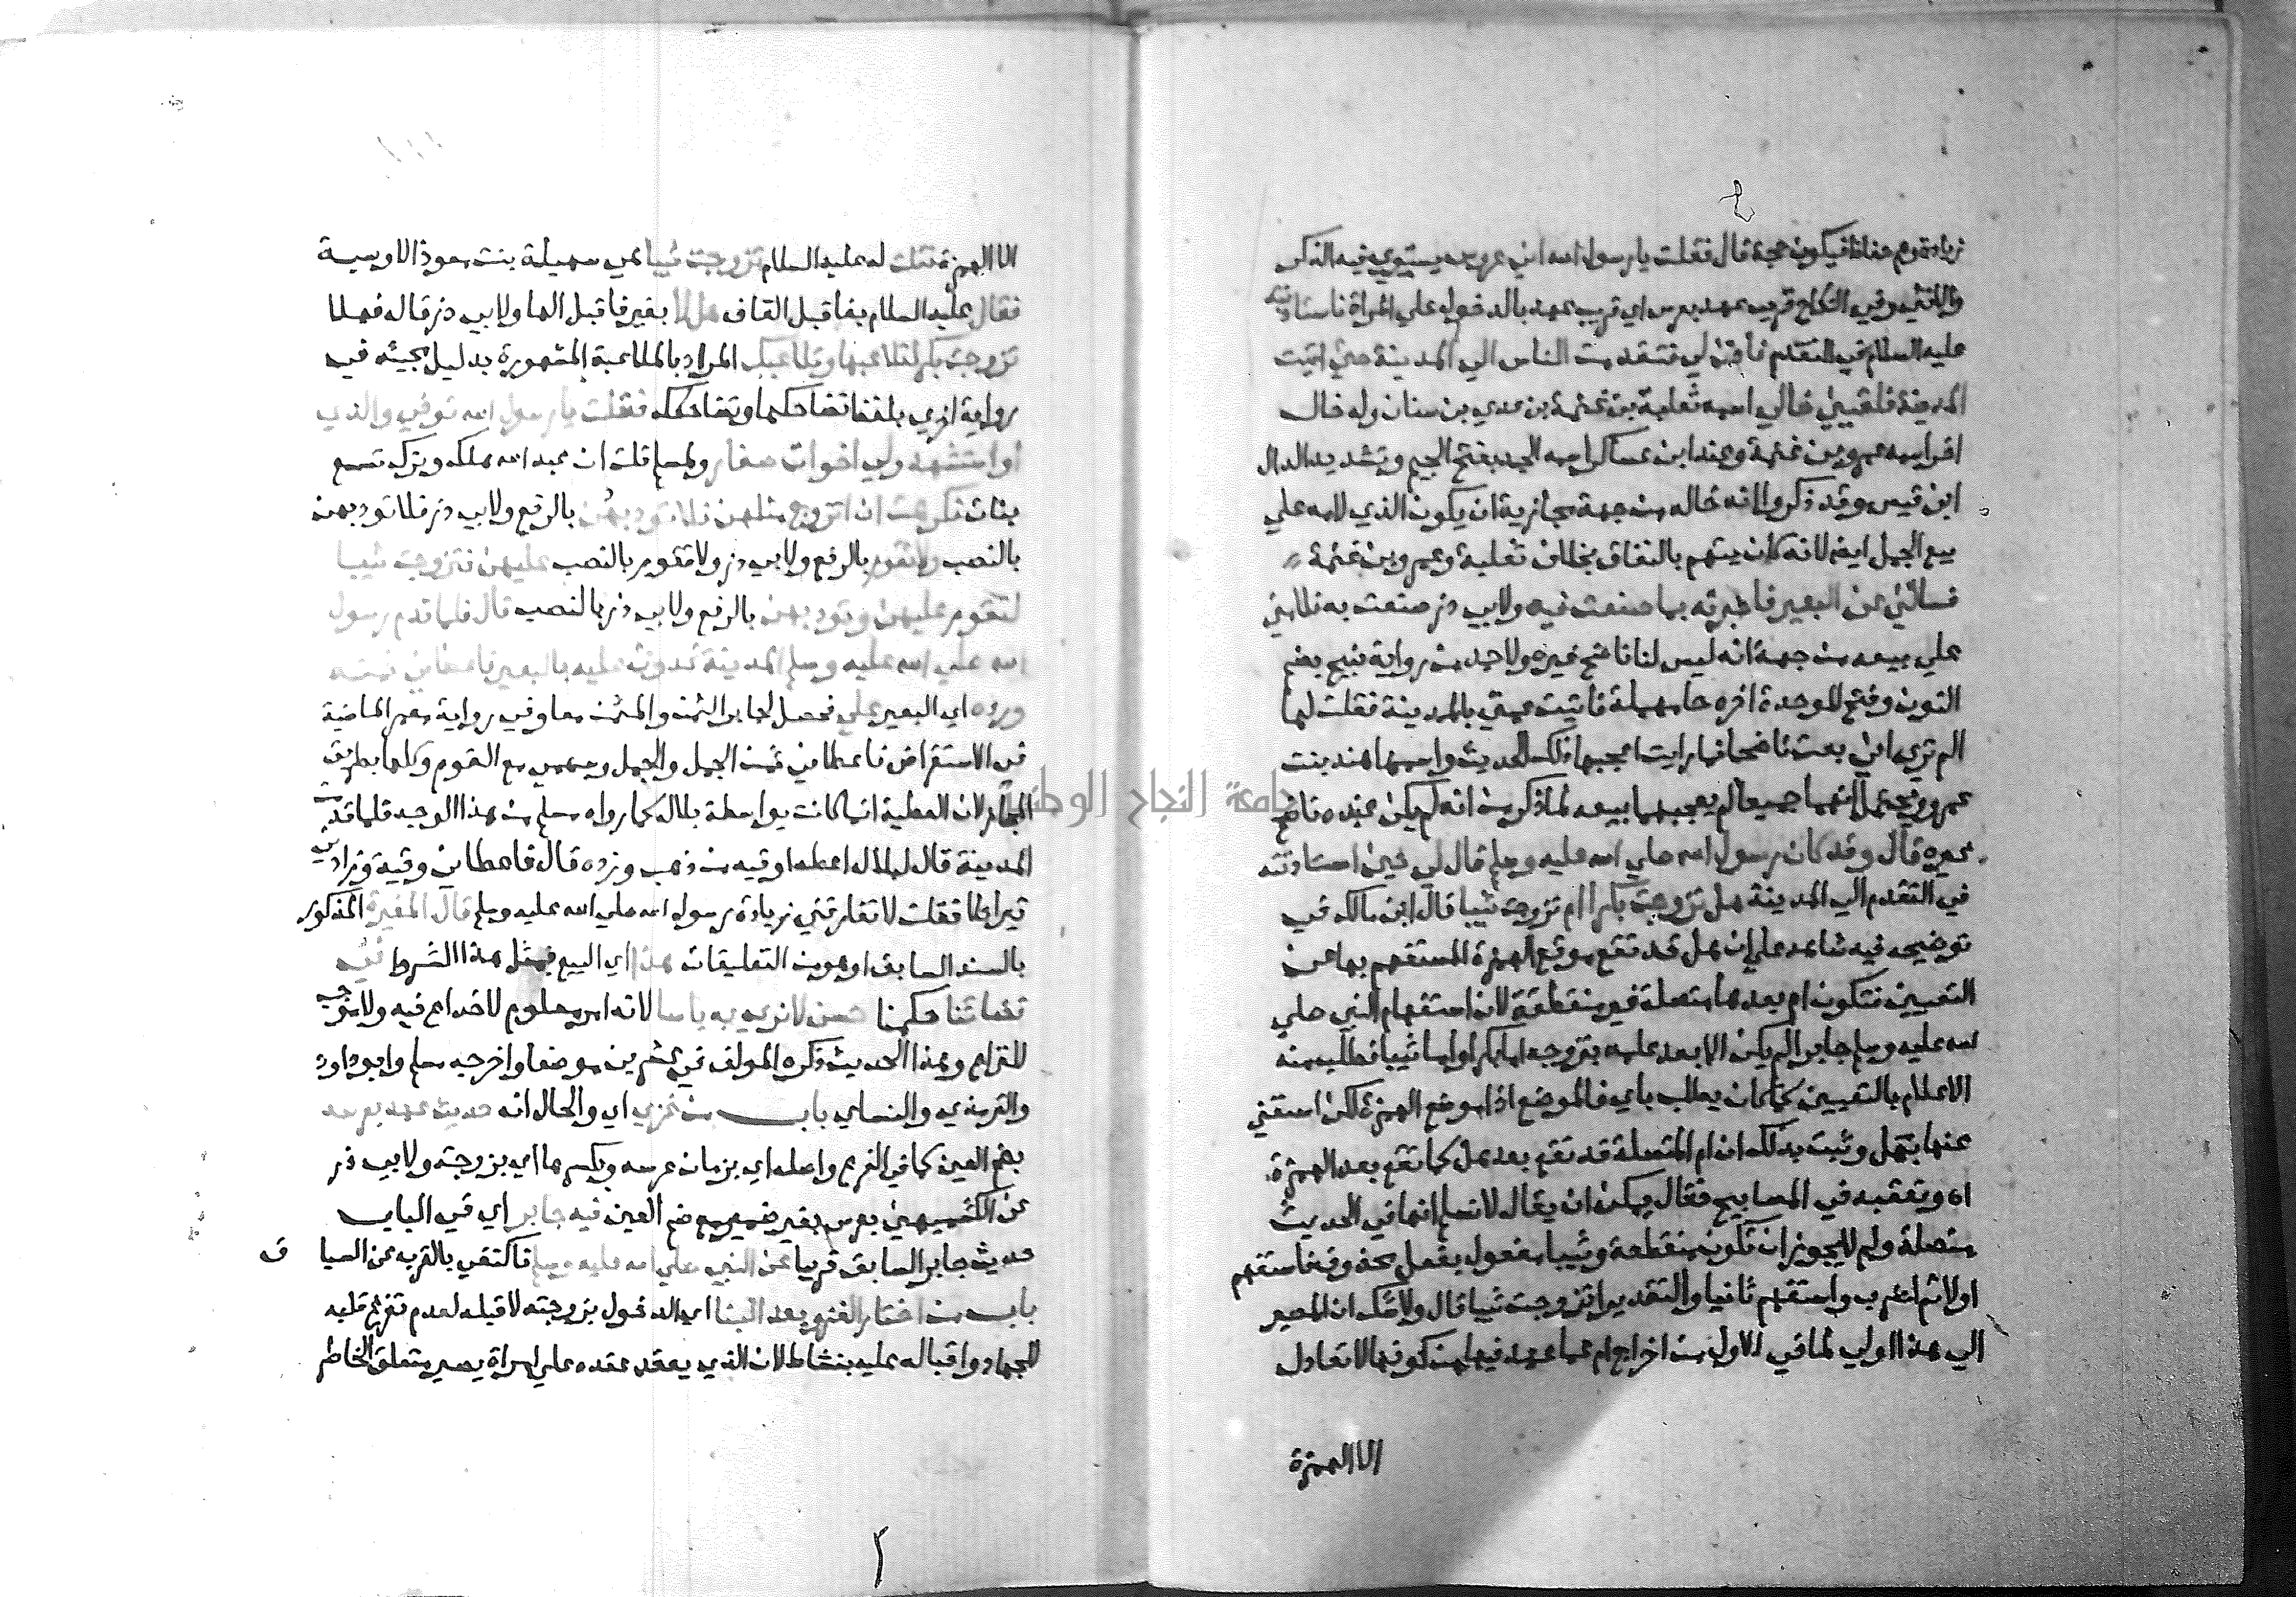 ٤
زيادة وهم حفاظ فيكون حجة قال فقلت يارسول الله اني عروس يستوي فيه الذكر
والانثى وفي النكاح قريب عهد بعرس اي قريب عهد بالدخول علي المراة فاستاذنته
عليه السلام في التقدم فاذن لي فتقدمت الناس الي المدينة حتى اتيت
المدينة فلقيني خالي اسمه ثعلبة بن غنمة بن عدي بن سنان وله خال
اخر اسمه عمرو بن غنمة وعند ابن عساكر اسمه الجد بفتح الجيم وتشديد الدال
ابن قيس وقد ذكروا انه خاله من جهة مجازية ان يكون الذي لامه علي
بيع الجمل ايضا لانه كان يتهم بالنفاق بخلاف ثعلبة وعمرو بن غنمة
فسالني عن البعير فاخبرته بما صنعت فيه ولابي ذر صنعت به فلامني
علي بيعه من جهة انه ليس لنا ناضح غيره ولاحمد من رواية نبيح بضم
النون وفتح الموحدة اخره حا مهملة فاتيت عمتي بالمدينة فقلت لها
الم تري اني بعت ناضحنا فما رايت اعجبها ذلك الحديث واسمها هند بنت
عمرو ويحتمل انهما جميعا لم يعجبهما بيعه لما ذكر من انه لم يكن عنده ناضح
غيره قال وقد كان رسول الله صلي الله عليه وسلم قال لي حين استاذنته
في التقدم الي المدينة هل تزوجت بكرا ام تزوجت ثيبا قال ابن مالك في
توضيحه فيه شاهد علي ان هل قد تقع موقع الهمزة المستفهم بها عن
التعيين فتكون ام بعدها متصلة غير منقطعة لان استفهام النبي صلي
الله عليه وسلم جابرا لم يكن الا بعد علمه بتزوجه اما بكرا واما ثيبا فطلب منه
الاعلام بالتعيين كما كان يطلب باي فالموضع اذا موضع الهمزة لكن استغني
عنها بهل وثبت بذلك ان ام المتصلة قد تقع بعد هل كما تقع بعد الهمزة
اه وتعقبه في المصابيح فقال يمكن ان يقال لا نسلم انها في الحديث
متصلة ولم لا يجوز ان تكون منقطعة وثيبا مفعول بفعل محذوف فاستفهم
اولا ثم اضرب واستفهم ثانيا والتقدير اتزوجت ثيبا قال ولا شك ان المصير
الي هذا اولي لما في الاول من اخراج ام عما عهد فيها من كونها لا تعادل
الا الهمزة
الا الهمزة فقلت له عليه السلام تزوجت ثيبا هي سهيلة بنت معوذ الاوسية
فقال عليه السلام بفا قبل القاف هلا بغير فا قبل الها ولابي ذر قال فهلا
تزوجت بكرا تلاعبها وتلاعبك المراد بالملاعبة المشهورة بدليل مجيئه في
رواية اخري بلفظ تضاحكها وتضاحكك فقلت يارسول الله توفي والدي
او استشهد ولي اخوات صغار ولمسلم قلت ان عبد الله هلك وترك تسع
بنات فكرهت ان اتزوج مثلهن فلا تودبهن بالرفع ولابي ذر فلا تودبهن
بالنصب ولا تقوم بالرفع ولابي ذر ولا تقوم بالنصب عليهن فتزوجت ثيبا
لتقوم عليهن وتودبهن بالرفع ولابي ذر بالنصب قال فلما قدم رسول
الله صلي الله عليه وسلم المدينة غدوت عليه بالبعير فاعطاني ثمنه
ورده اي البعير علي فحصل لجابر الثمن والمثمن معا وفي رواية معمر الماضية
في الاستقراض فاعطاني ثمن الجمل والجمل وسهمي مع القوم وكلها بطريق
المجاز لان العطية انما كانت بواسطة بلال كما رواه مسلم من هذا الوجه فلما قدمت
المدينة قال لبلال اعطه اوقيه من ذهب وزده قال فاعطاني وقية وزادني
قيراطا فقلت لا تفارقني زيادة رسول الله صلي الله عليه وسلم قال المغيرة المذكور
بالسند السابق او هو من التعليقات هذا اي البيع بمثل هذا الشرط في
قضائنا حكمنا حسن لا نري به باسا لانه امر معلوم لا خداع فيه ولا موجب
للنزاع وهذا الحديث ذكره المولف في عشرين موضعا واخرجه مسلم وابو داود
والترمذي والنساي باب من غزي اي والحال انه حديث عهد بعرسه
بضم العين كما في الفرع واصله اي بزمان عرسه وبكسرها اي بزوجته ولابي ذر
عن الكشميهني بعرس بغير ضمير مع ضم العين فيه جابر اي في الباب
حديث جابر السابق قريبا عن النبي صلي الله عليه وسلم فاكتفي بالقرب عن السيا ق
باب من اختار الغزو بعد البنا اي الدخول بزوجته لا قبله لعدم تفرغ قلبه
للجهاد واقباله عليه بنشاط لان الذي يعقد عقده علي امراة يصير متعلق الخاطر
جامعة النجاح الوطنية